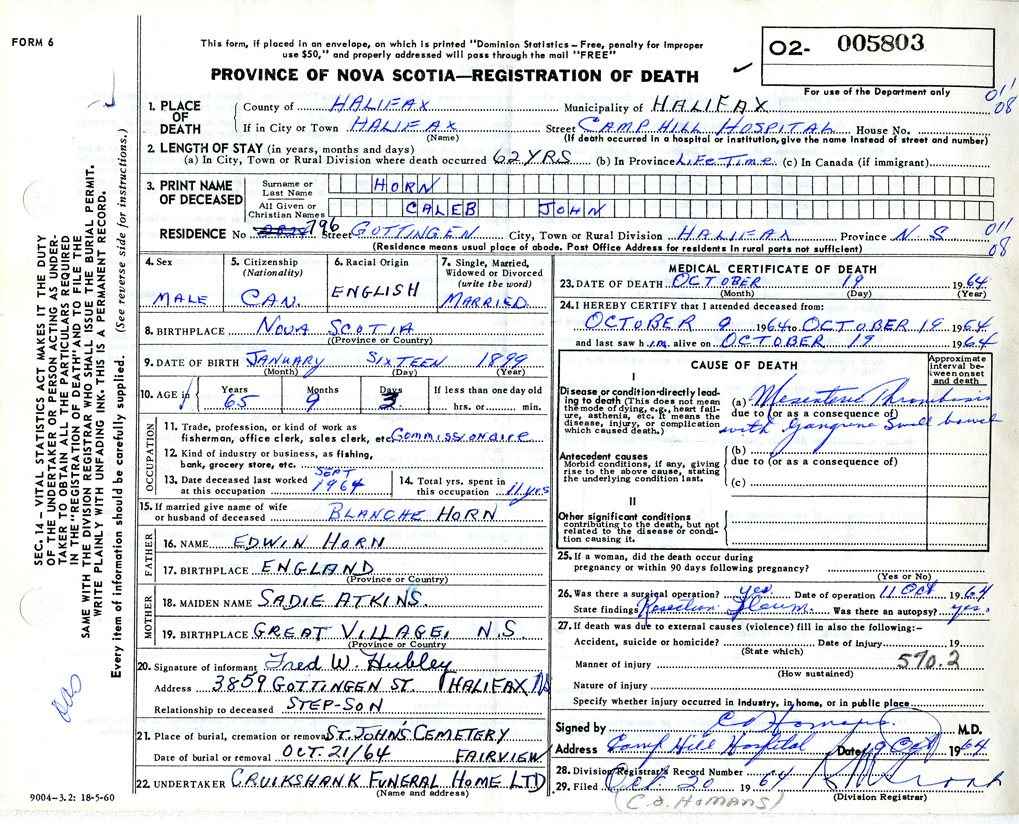 FORM 6
This form, if placed in an envelope, on which is printed "Dominion Statistics – Free, penalty for improper
use $50," and properly addressed will pass through the mail "FREE"
PROVINCE OF NOVA SCOTIA—REGISTRATION OF DEATH
02- 005803
For use of the Department only
011
08
1. PLACE OF DEATH County of HALIFAX Municipality of HALIFAX
If in City or Town HALIFAX Street CAMP HILL HOSPITAL House No.
(Name) (If death occurred in a hospital or institution, give the name instead of street and number)
2. LENGTH OF STAY (in years, months and days)
(a) In City, Town or Rural Division where death occurred 62 YRS (b) In Province LIFE TIME (c) In Canada (if immigrant)
3. PRINT NAME OF DECEASED
Surname or Last Name HORN
All Given or Christian Names CALEB JOHN
RESIDENCE No 796 Street GOTTINGEN City, Town or Rural Division HALIFAX Province N.S.
011
08
(Residence means usual place of abode. Post Office Address for residents in rural parts not sufficient)
4. Sex MALE
5. Citizenship (Nationality) CAN.
6. Racial Origin ENGLISH
7. Single, Married, Widowed or Divorced (write the word) MARRIED
8. BIRTHPLACE NOVA SCOTIA
(Province or Country)
9. DATE OF BIRTH JANUARY SIXTEEN 1899
(Month) (Day) (Year)
10. AGE in Years 65 Months 9 Days 3 If less than one day old hrs. or min.
OCCUPATION
11. Trade, profession, or kind of work as
fisherman, office clerk, sales clerk, etc. Commissionaire
12. Kind of industry or business, as fishing,
bank, grocery store, etc.
13. Date deceased last worked at this occupation SEPT 1964
14. Total yrs. spent in this occupation 11 yrs
15. If married give name of wife
or husband of deceased BLANCHE HORN
FATHER
16. NAME EDWIN HORN
17. BIRTHPLACE ENGLAND
(Province or Country)
MOTHER
18. MAIDEN NAME SADIE ATKINS.
19. BIRTHPLACE GREAT VILLAGE, N.S.
(Province or Country)
20. Signature of informant Fred W. Hubley
Address 3859 GOTTINGEN ST. HALIFAX NS
Relationship to deceased STEP-SON
21. Place of burial, cremation or removal ST. JOHN'S CEMETERY
Date of burial or removal OCT. 21/64 FAIRVIEW
22. UNDERTAKER CRUIKSHANK FUNERAL HOME LTD
(Name and address)
9004-3.2: 18-5-60
MEDICAL CERTIFICATE OF DEATH
23. DATE OF DEATH OCTOBER 19 1964
(Month) (Day) (Year)
24. I HEREBY CERTIFY that I attended deceased from:
OCTOBER 9 1964 to OCTOBER 19 1964
and last saw h im. alive on OCTOBER 19 1964
CAUSE OF DEATH
Approximate interval between onset and death
I
Disease or condition directly leading to death (This does not mean the mode of dying, e.g., heart failure, asthenia, etc. It means the disease, injury, or complication which caused death.)
(a) Mesenteric Thrombosis
due to (or as a consequence of)
with Gangrene Small bowel
Antecedent causes
Morbid conditions, if any, giving rise to the above cause, stating the underlying condition last.
(b)
due to (or as a consequence of)
(c)
II
Other significant conditions
contributing to the death, but not related to the disease or condition causing it.
25. If a woman, did the death occur during
pregnancy or within 90 days following pregnancy?
(Yes or No)
26. Was there a surgical operation? yes Date of operation 11 Oct 1964
State findings Resection Ileum. Was there an autopsy? yes.
27. If death was due to external causes (violence) fill in also the following:–
Accident, suicide or homicide? Date of injury 19
(State which)
Manner of injury 570.2
(How sustained)
Nature of injury
Specify whether injury occurred in industry, in home, or in public place
Signed by C. D. Homans. M.D.
Address Camp Hill Hospital Date 19 Oct 1964
28. Division Registrar's Record Number
29. Filed Oct. 20 1964
(Division Registrar)
(C.D. HOMANS)
SEC. 14 – VITAL STATISTICS ACT MAKES IT THE DUTY
OF THE UNDERTAKER OR PERSON ACTING AS UNDER-
TAKER TO OBTAIN ALL THE PARTICULARS REQUIRED
IN THE "REGISTRATION OF DEATH" AND TO FILE THE
SAME WITH THE DIVISION REGISTRAR WHO SHALL ISSUE THE BURIAL PERMIT.
WRITE PLAINLY WITH UNFADING INK. THIS IS A PERMANENT RECORD.
Every item of information should be carefully supplied. (See reverse side for instructions.)